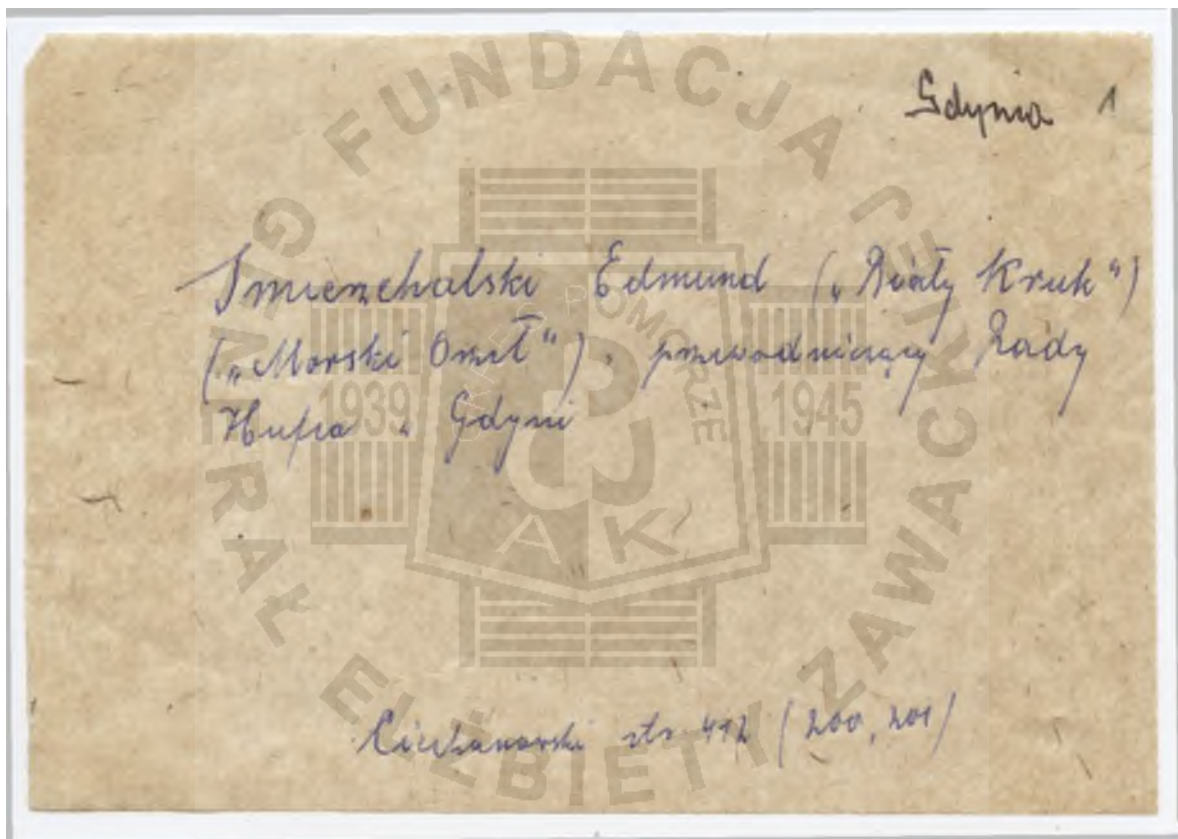 Gdynia 1
Smierzchalski Edmund („Biały Kruk“)
(„Morski Orzeł“), przewodniczący Rady
Hufca w Gdyni
Ciechanowski str 412 (200, 201)
FUNDACJA GENERAŁ ELŻBIETY ZAWACKIEJ
POMORZE
1939 1945
AK